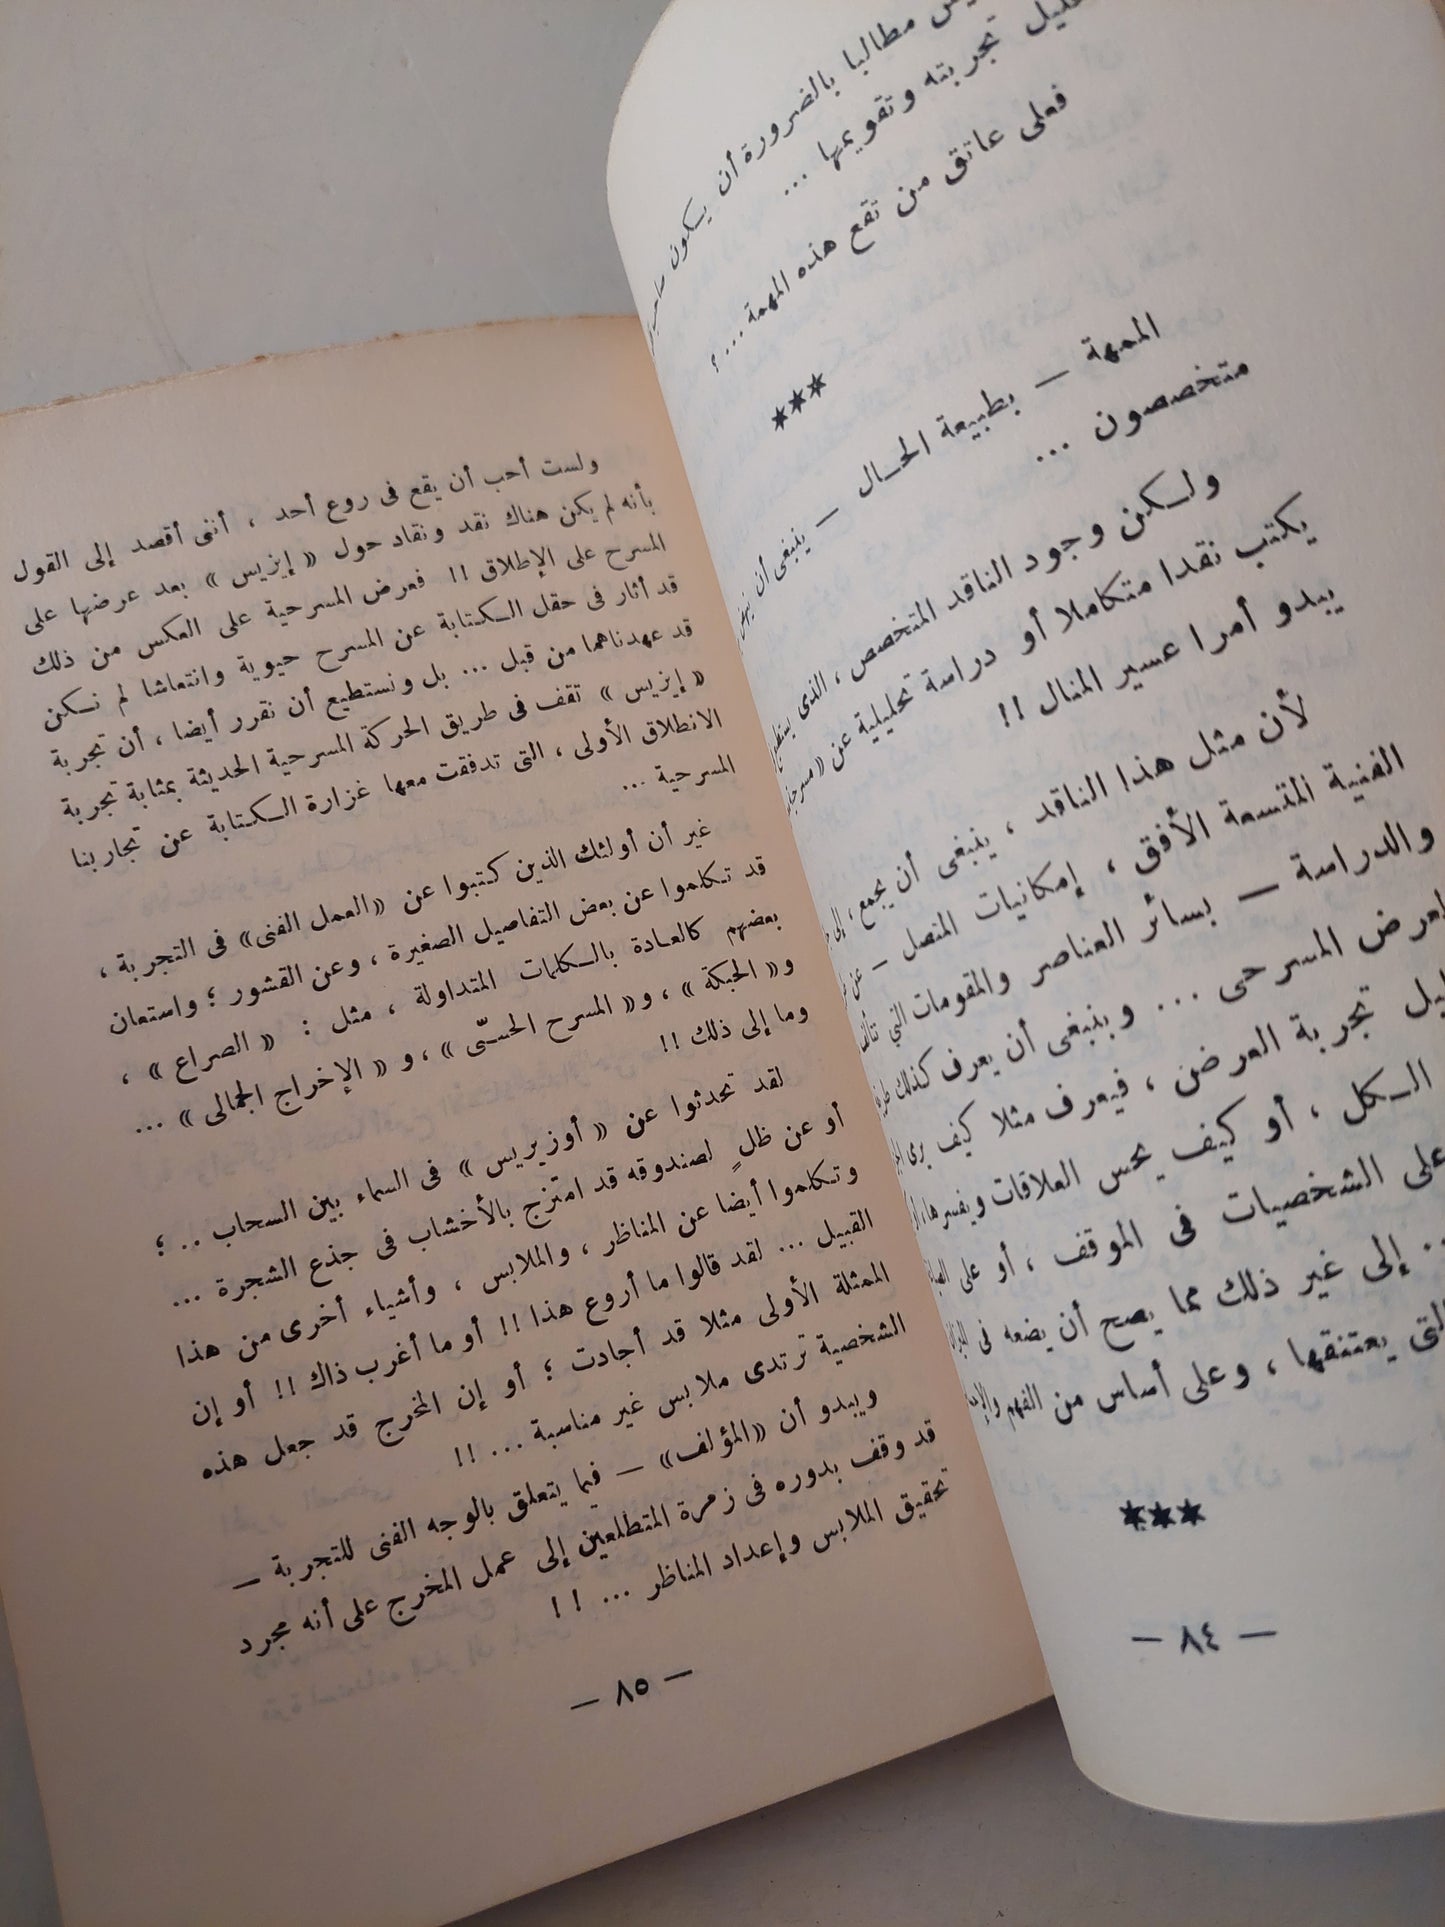 مطالبا بالضرورة أن يكون
تجربته وتقويمها ...
فعلى عاتق من تقع هذه المهمة .... ؟
***
الممهة — بطبيعة الحال — ينبغى أن
متخصصون ...
ولكن وجود الناقد المتخصص ، الذى
يكتب نقدا متكاملا أو دراسة تحليلية عن
يبدو أمرا عسير المنال !!
لأن مثل هذا الناقد ، ينبغى أن يجمع ، إلى
الفنية المتسعة الأفق ، إمكانيات المتصل — عن
والدراسة — بسائر العناصر والمقومات التي تتألف
العرض المسرحى ... وينبغى أن يعرف كذلك
تجربة العرض ، فيعرف مثلا كيف يرى
الكل ، أو كيف يحس العلاقات ويفسرها ،
على الشخصيات فى الموقف ، أو على
.. إلى غير ذلك مما يصح أن يضعه فى
التى يعتنقها ، وعلى أساس من الفهم
***
— ٨٤ —
ولست أحب أن يقع فى روع أحد ، أننى أقصد إلى القول
بأنه لم يكن هناك نقد ونقاد حول « إيزيس » بعد عرضها على
المسرح على الإطلاق !! فعرض المسرحية على العكس من ذلك
قد أثار فى حقل الكتابة عن المسرح حيوية وانتعاشا لم نكن
قد عهدناهما من قبل ... بل ونستطيع أن نقرر أيضا ، أن تجربة
« إيزيس » تقف فى طريق الحركة المسرحية الحديثة بمثابة تجربة
الانطلاق الأولى ، التى تدفقت معها غزارة الكتابة عن تجاربنا
المسرحية ...
غير أن أولئك الذين كتبوا عن «العمل الفنى» فى التجربة ،
قد تكلموا عن بعض التفاصيل الصغيرة ، وعن القشور ؛ واستعان
بعضهم كالعادة بالكلمات المتداولة ، مثل : « الصراع » ،
و« الحبكة » ، و« المسرح الحسّى » ، و « الإخراج الجمالى » ...
وما إلى ذلك !!
لقد تحدثوا عن « أوزيريس » فى السماء بين السحاب .. ؛
أو عن ظلٍ لصندوقه قد امتزج بالأخشاب فى جذع الشجرة ...
وتكلموا أيضا عن المناظر ، والملابس ، وأشياء أخرى من هذا
القبيل ... لقد قالوا ما أروع هذا !! أو ما أغرب ذاك !! أو إن
الممثلة الأولى مثلا قد أجادت ؛ أو إن المخرج قد جعل هذه
الشخصية ترتدى ملابس غير مناسبة ... !!
ويبدو أن «المؤلف» — فيما يتعلق بالوجه الفنى للتجربة —
قد وقف بدوره فى زمرة المتطلعين إلى عمل المخرج على أنه مجرد
تحقيق الملابس وإعداد المناظر ... !!
— ٨٥ —